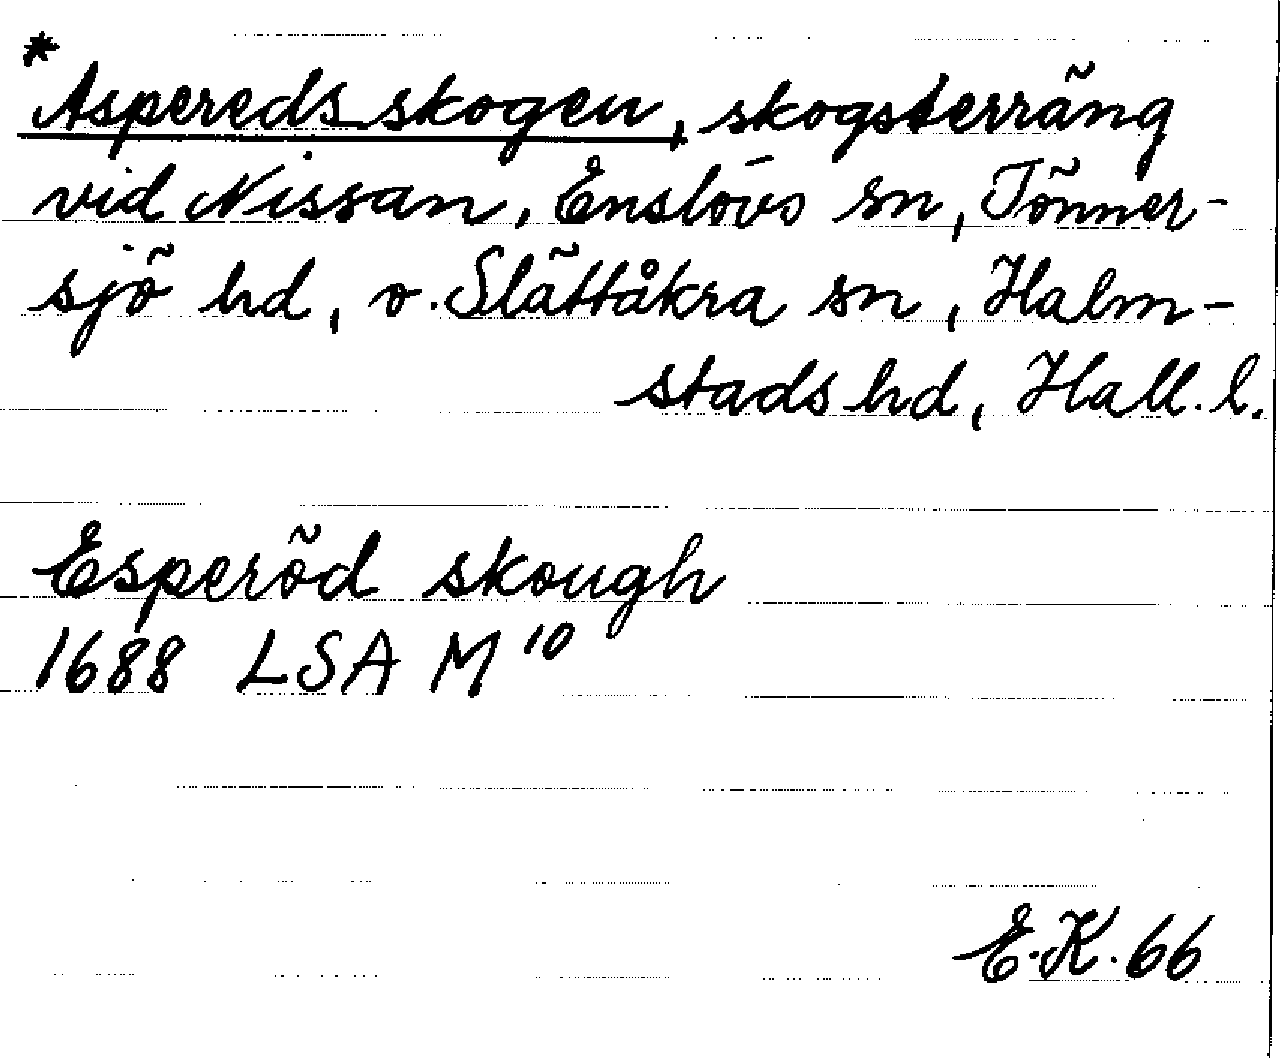 *Aspereds skogen, skogsterräng
vid Nissan, Enslövs sn, Tönner-
sjö hd, o. Slättåkra sn, Halm-
stads hd, Hall. l.
Esperöd skough
1688 LSA M 10
E.K. 66